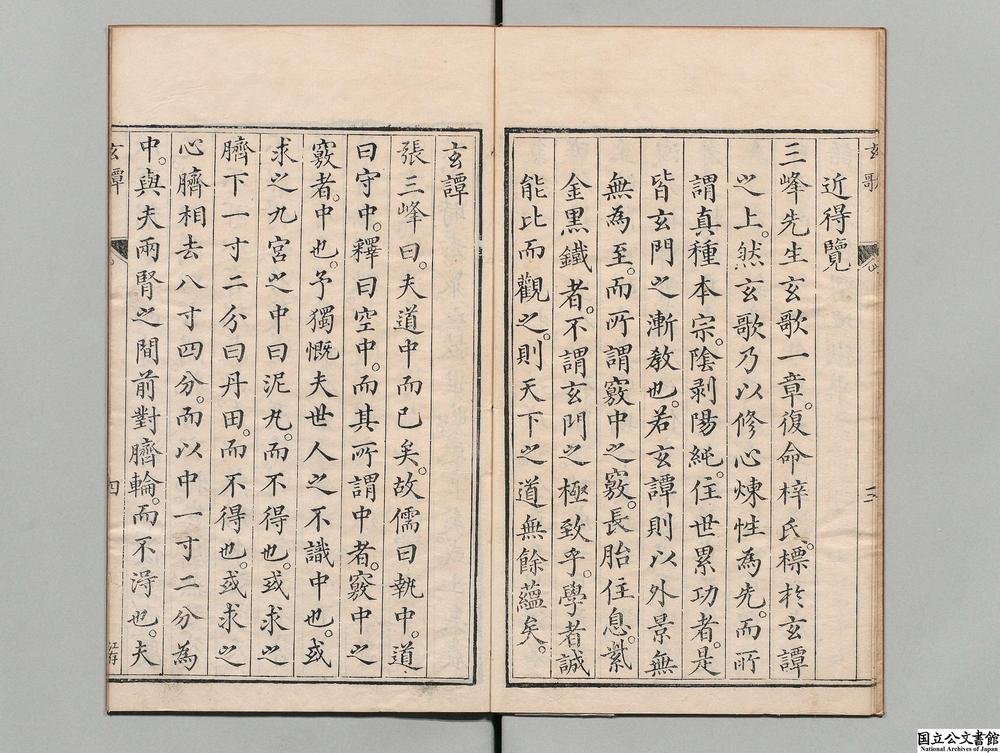 玄歌
三
近得覽
三峰先生玄歌一章。復命梓氏。標於玄譚
之上。然玄歌乃以修心煉性為先。而所
謂真種本宗。陰剥陽純。住世累功者。是
皆玄門之漸教也。若玄譚則以外景無
無為至。而所謂竅中之竅。長胎住息。紫
金黑鐵者。不謂玄門之極致乎。學者誠
能比而觀之。則天下之道無餘蘊矣。
玄譚
張三峰曰。夫道中而已矣。故儒曰執中。道
曰守中。釋曰空中。而其所謂中者。竅中之
竅者。中也。予獨慨夫世人之不識中也。或
求之九宮之中曰泥丸。而不得也。或求之
臍下一寸二分曰丹田。而不得也。或求之
心臍相去八寸四分。而以中一寸二分為
中。與夫兩腎之間前對臍輪。而不淂也。夫
玄譚
四
国立公文書館
National Archives of Japan